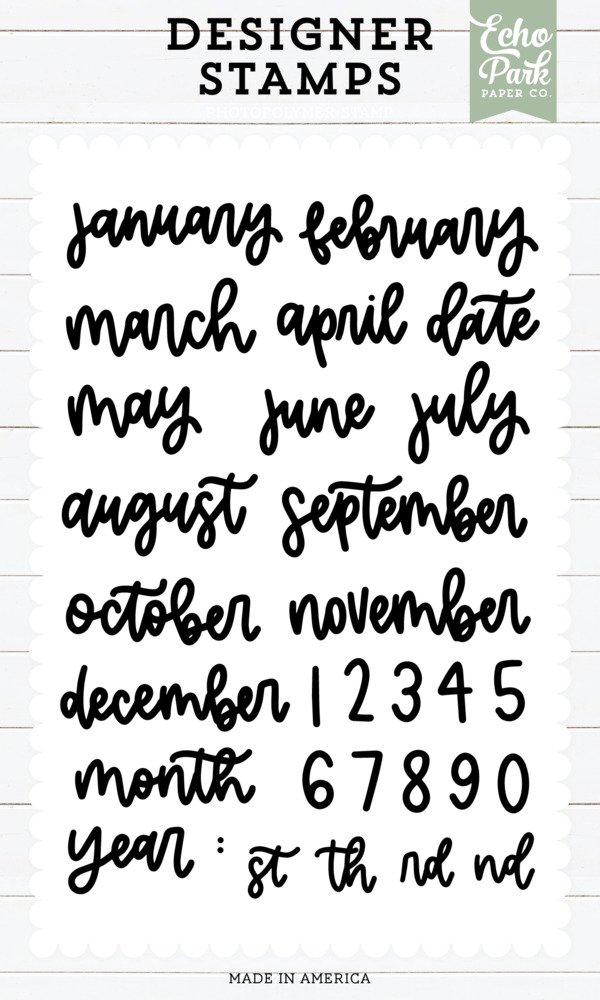 DESIGNER
STAMPS
PHOTOPOLYMER STAMP
Echo
Park
PAPER CO.
january february
march april date
may june july
august september
october november
december 1 2 3 4 5
month 6 7 8 9 0
year : st th rd nd
MADE IN AMERICA